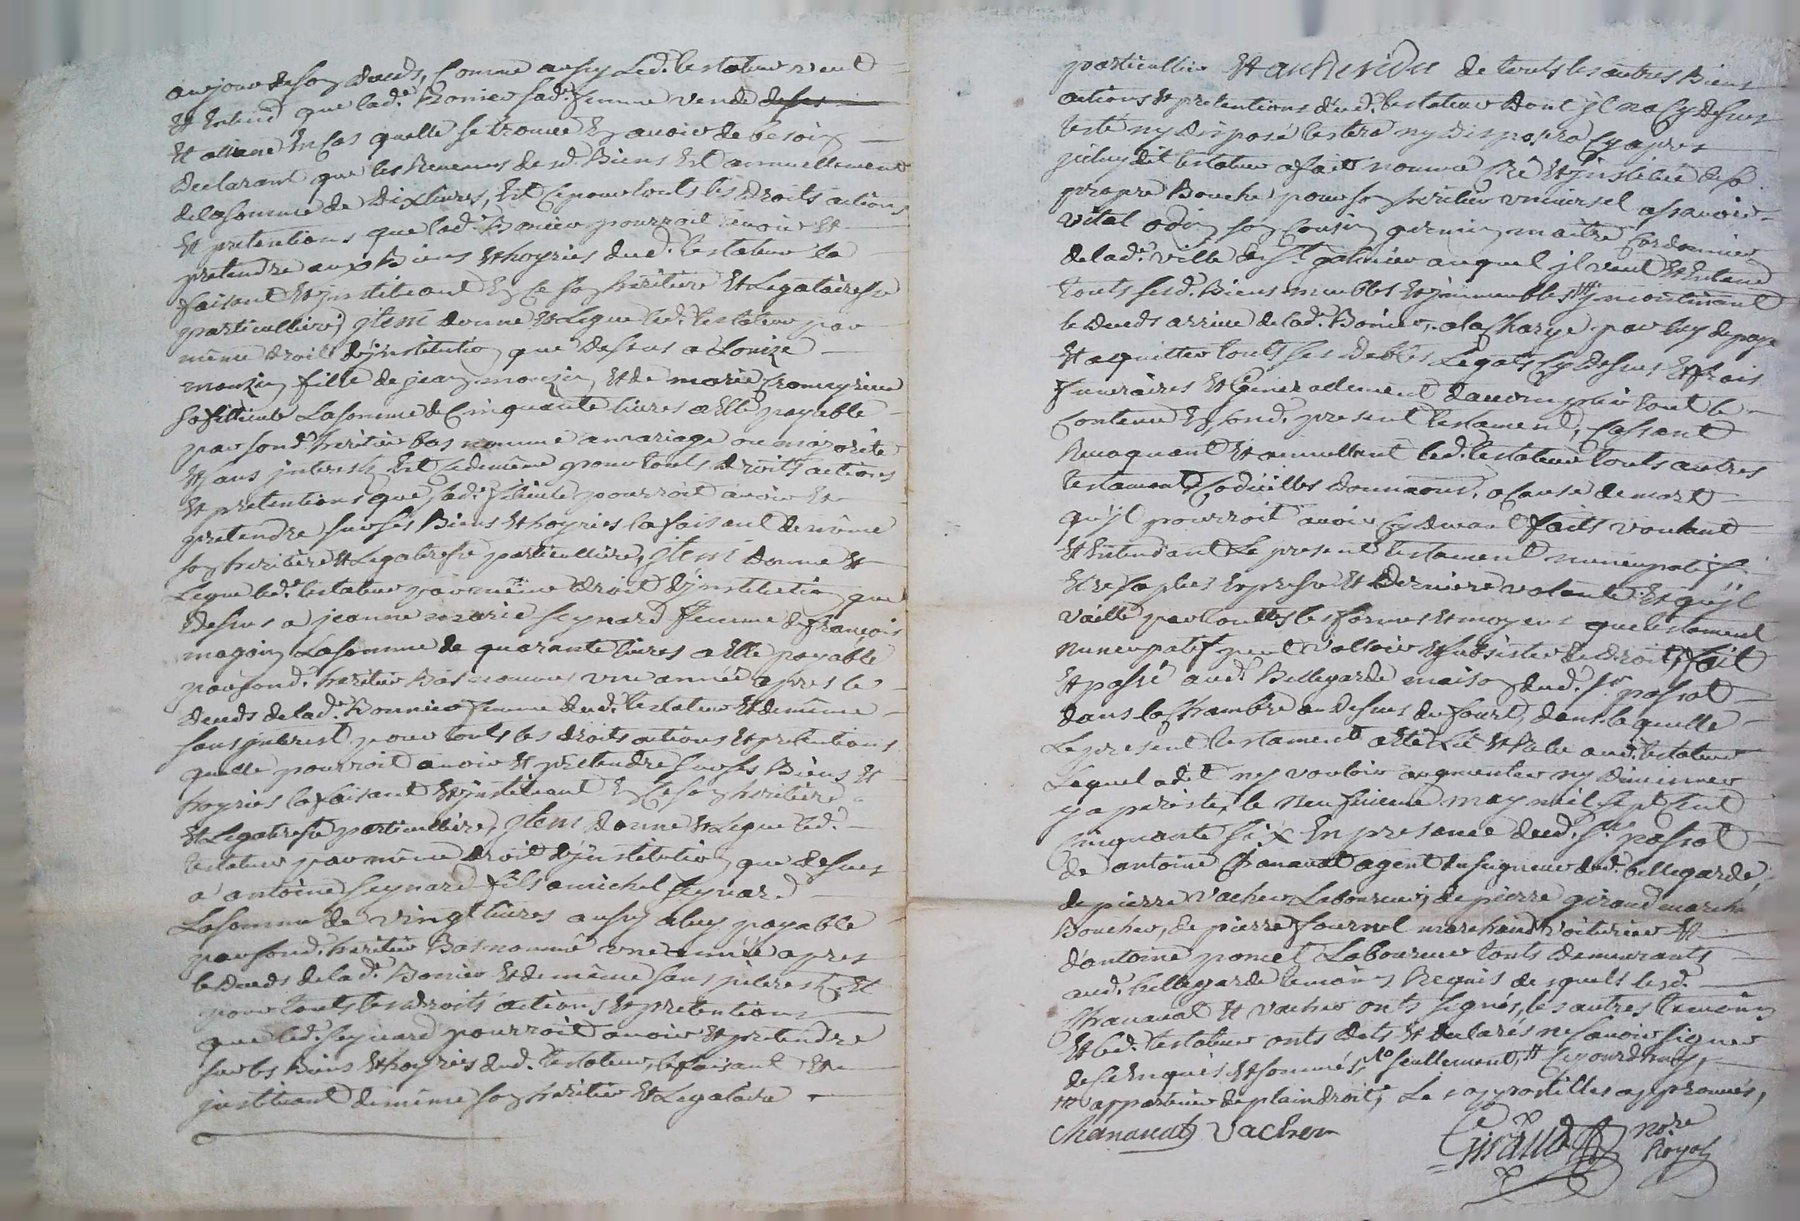 au jour de son deceds, comme aussy led. testateur veut
et entend que lad.e Bonnier sad. femme vende
et aliene en cas quelle se trouve en avoir de besoin
declarant que les Revenus de sd. Biens est annuellement
de la somme de Dix livres, Et ce pour touts les droits actions
Et pretentions que lad.e Bonnier pourroit avoir Et
pretendre aux Biens Et hoyries dud. testateur la
faisant Et jnstituant En ce son heritiere Et Legatairesse
particulliere, jtem donne Et Legue led. testateur par
même droit d'jnstitution que dessus a Louize
mouzin fille de jean mouzin Et de marie
sa filleule La somme de Cinquante livres a Elle payable
par sond. heritier bas nommé a mariage ou majorité
Et sans jnterests, Et de même pour touts droits actions
Et pretentions que lad.e filleule pourroit avoir Et
pretendre sur ses Biens Et hoyries la faisant de même
son heritiere Et Legatresse particulliere, jtem donne Et
Legue led.t testateur par même droit d'jnstitution que
dessus a jeanne marie seynard femme de françois
magoin La somme de quarante livres a Elle payable
par sond. heritier Bas nommé une année apres le
deceds de lad.e Bonnier femme dud. testateur Et de même
sans jnterest pour touts les droits actions Et pretentions
quelle pourroit avoir Et pretendre sur ses Biens Et
hoyries la faisant Et jnstituant En ce son heritiere
Et Legatresse particulliere, jtem donne Et Legue led.
testateur par même droit d'jnstitution que dessus
a antoine seynard fils a michel seynard
La somme de vingt livres aussy a luy payable
par sond. heritier Bas nommé une année apres
le deceds de lad.e Bonier Et de même sans jnterest, Et
pour touts les droits actions Et pretentions
que led. seynard pourroit avoir Et pretendre
sur les Biens Et hoyries dud. testateur, le faisant Et
jnstituant de même son heritier Et Legataire
particullier Et au Residu de touts les autres Biens
actions Et pretentions dud. testateur dont jl na Cy dessus
testé ny disposé testera ny disposera Cy apres
jcelluy dit testateur a fait nommé Et jnstitué de sa
propre Bouche pour son heritier universel assavoir
vital odin son Cousin germain maitre Cordonnier
de lad.e ville de St galmier auquel jl veut Et Entend
touts sesd. Biens meubles Et jmmeubles
le deceds arrivé de lad.e Bonier, a la Charge par luy de payer
Et aquitter touts ses debtes Legats Cy dessus Et frais
funeraires Et generallement d'accomplir tout le
Contenu En sond. present testament, Cassant
Revoquant Et annullant led. testateur touts autres
testaments Codicilles donnaons. a cause de mort
qu'jl pourroit avoir Cy devant faits voulant
Et Entendant Le present testament nuncupatif
Etre sa plus Expresse Et derniere volonté Et qu'jl
vaille par touttes les formes Et moyens que testament
nuncupatif peut valloir Et subsister de droit, fait
Et passé aud. Bellegarde maison dud. Sr. passot
dans la Chambre au dessus du fourt, dans laquelle
Le present testament a Eté Lû Et Relu aud. testateur
Lequel a dit ny vouloir augmenter ny diminuer
y a persisté, le neufvieme may mil sept Cent
Cinquante six En presance dud. Sr. passot
de antoine Chanavat agent du seigneur dud. bellegarde,
de pierre vacher Laboureur, de pierre giraud march.
Boucher, de pierre fournel marchand voiturier Et
d'antoine poncet Laboureur touts demeurants
aud. bellegarde temoins Requis desquels lesd.
Chanavat Et vacher onts signés, les autres temoins
Et led. testateur onts dits Et declarés ne savoir signer
de Ce Enquis Et sommés, seullement,
appartenir de plain droit, Les appostilles approuvés,
Chanavat Vacher
Giraud nore
Royal